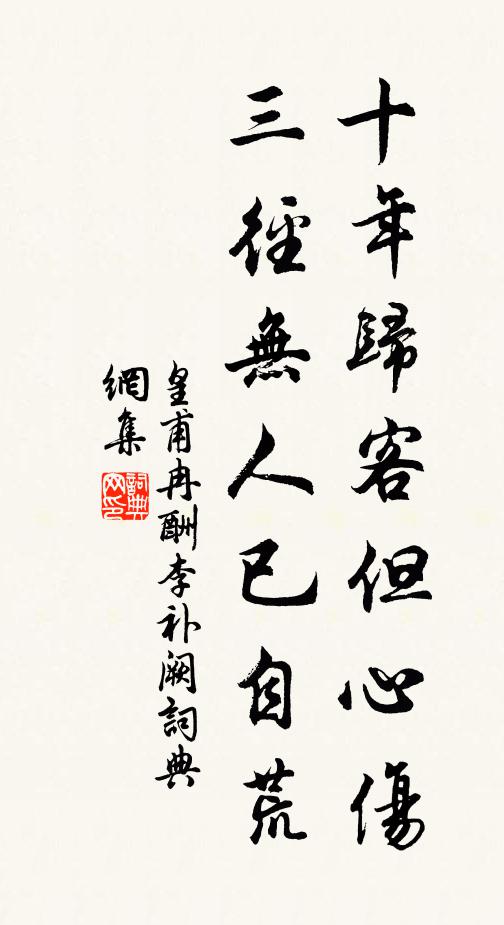 十年歸客但心傷
三徑無人已自荒
皇甫冉酬李补阙詞典
網集
詞典网印